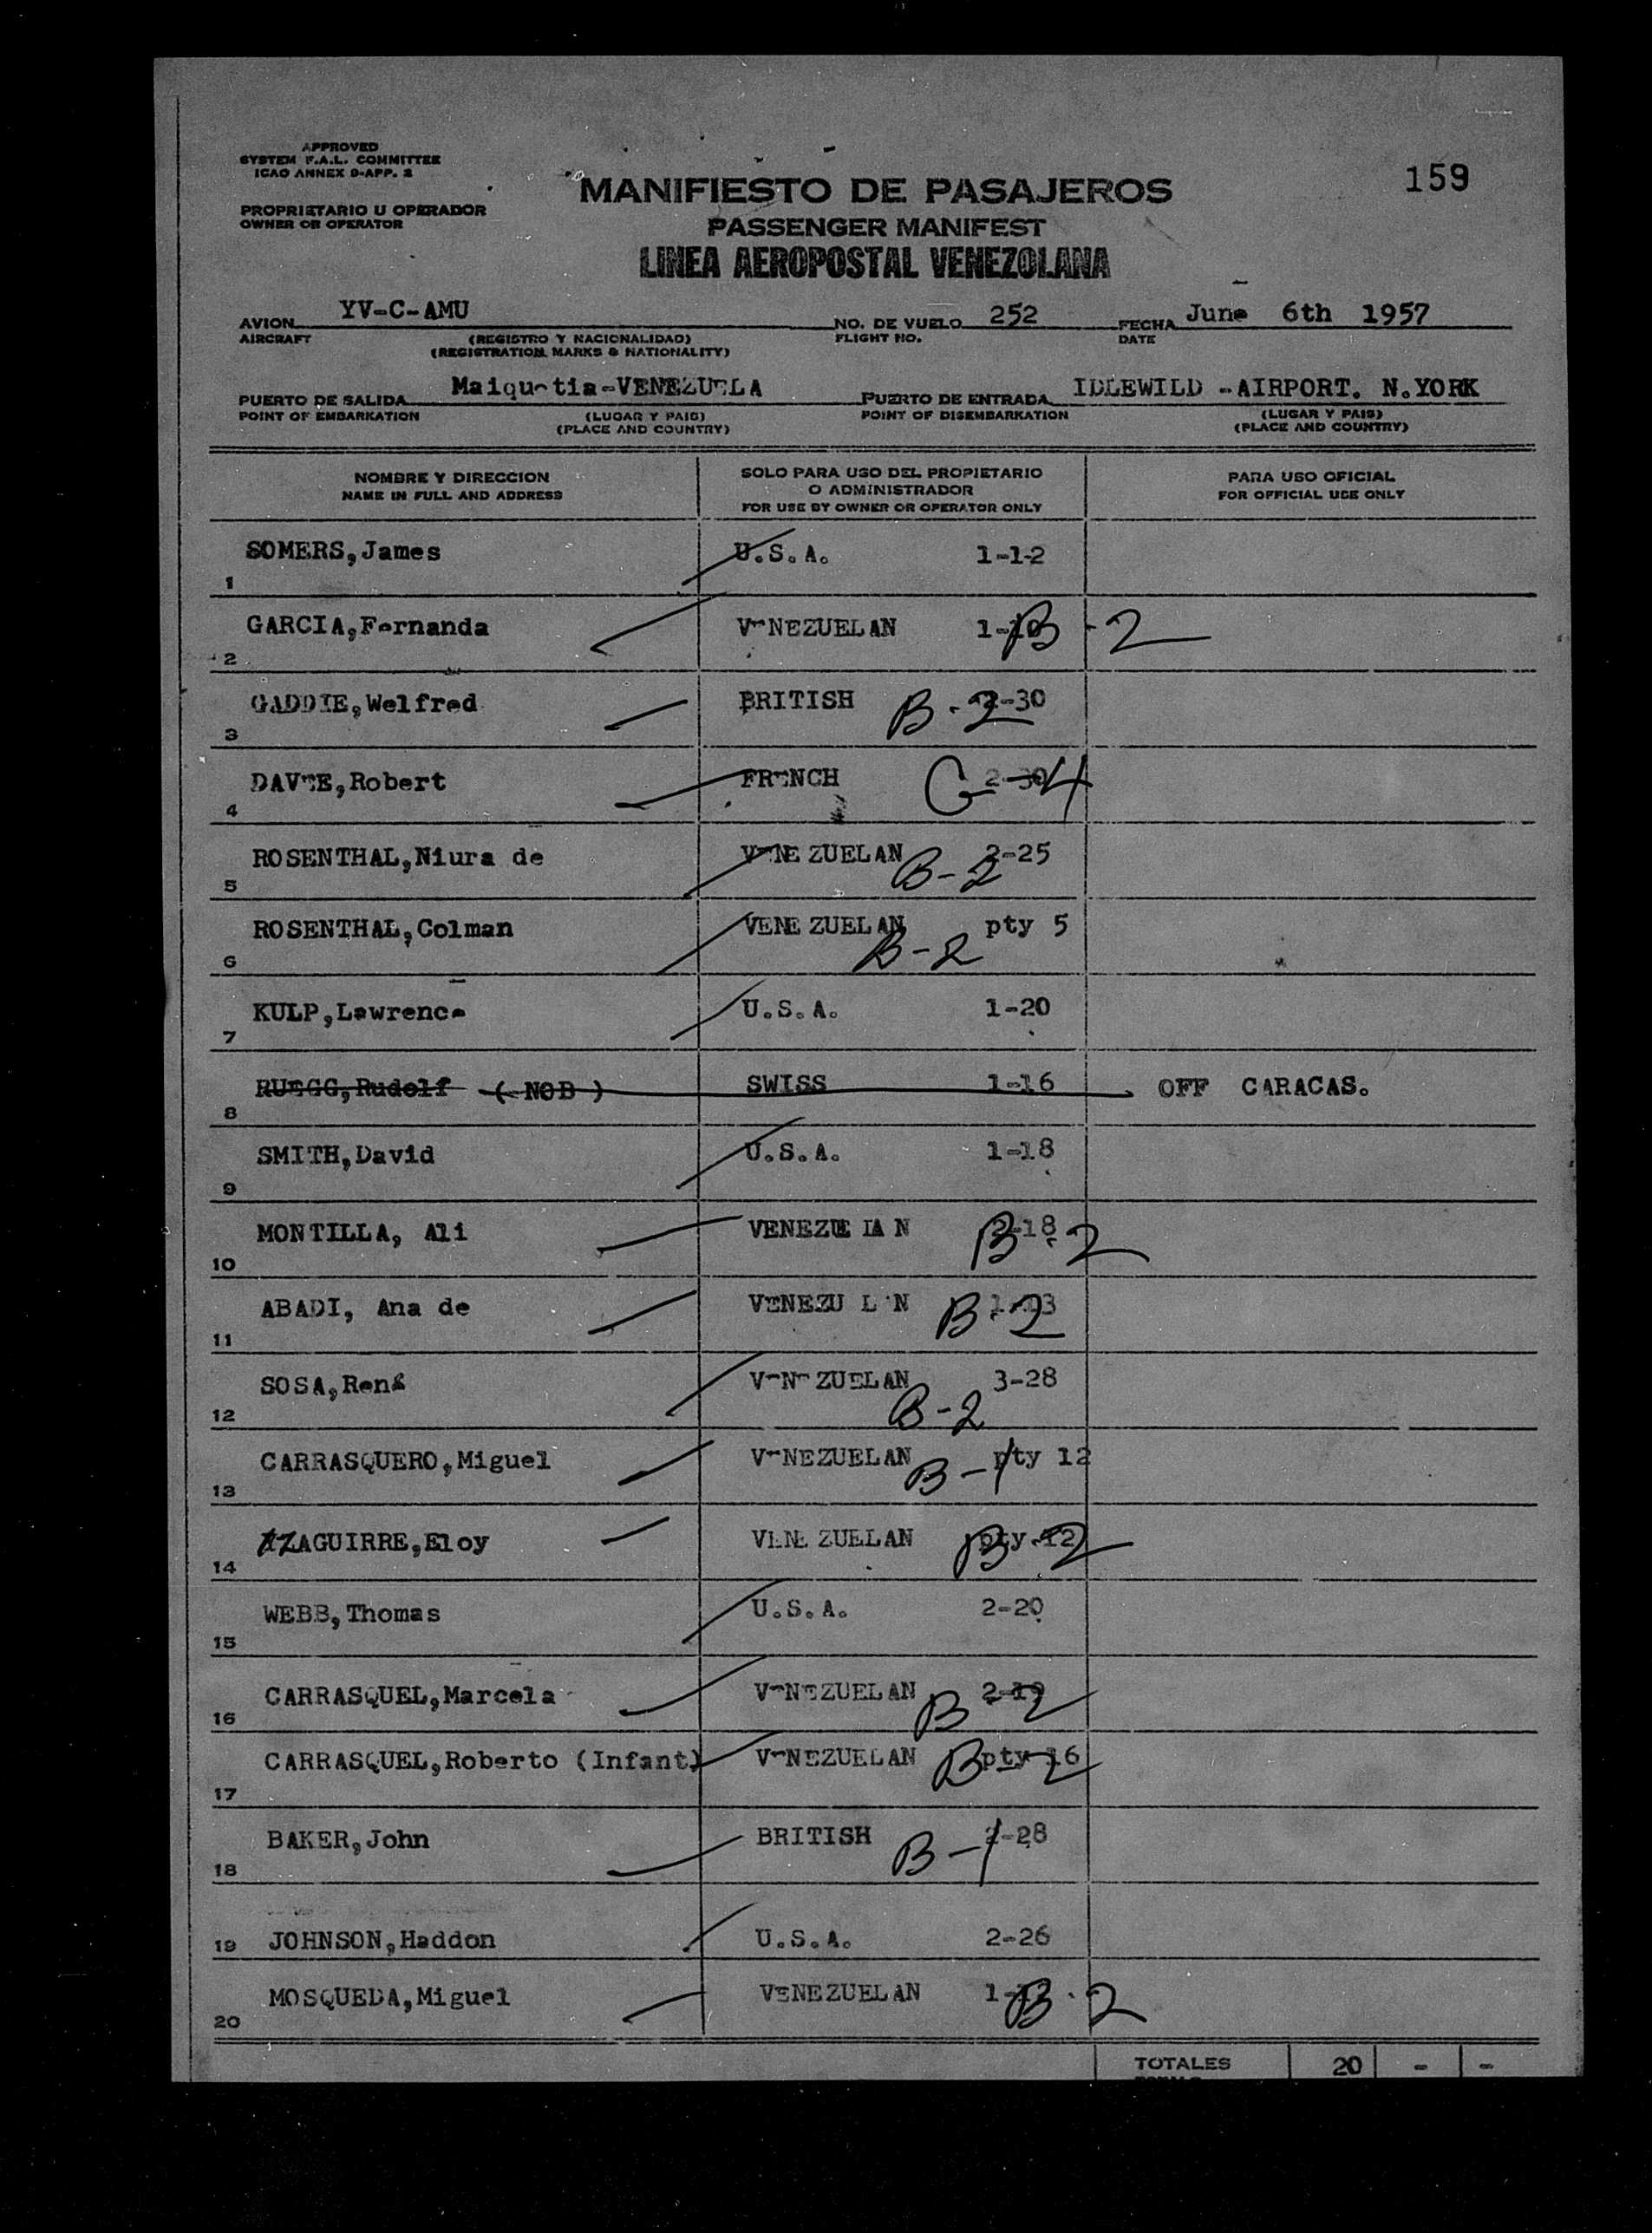 APPROVED
SYSTEM F.A.L. COMMITTEE
ICAO ANNEX 9-APP. 2
159
MANIFIESTO DE PASAJEROS
PROPRIETARIO U OPERADOR
OWNER OR OPERATOR
PASSENGER MANIFEST
LINEA AEROPOSTAL VENEZOLANA
AVION YV-C-AMU NO. DE VUELO 252 FECHA June 6th 1957
AIRCRAFT (REGISTRO Y NACIONALIDAD) FLIGHT NO. DATE
(REGISTRATION MARKS & NATIONALITY)
PUERTO DE SALIDA Maiquetia-VENEZUELA PUERTO DE ENTRADA IDLEWILD -AIRPORT. N.YORK
POINT OF EMBARKATION (LUGAR Y PAIS) POINT OF DISEMBARKATION (LUGAR Y PAIS)
(PLACE AND COUNTRY) (PLACE AND COUNTRY)
NOMBRE Y DIRECCION SOLO PARA USO DEL PROPIETARIO PARA USO OFICIAL
NAME IN FULL AND ADDRESS O ADMINISTRADOR FOR OFFICIAL USE ONLY
FOR USE BY OWNER OR OPERATOR ONLY
1 SOMERS,James U.S.A. 1-1-2
2 GARCIA,Fernanda VENEZUELAN B-2
3 GADDIE,Welfred BRITISH B-2 2-30
4 DAVEE,Robert FRENCH G-4
5 ROSENTHAL,Niura de VENEZUELAN B-2 2-25
6 ROSENTHAL,Colman VENEZUELAN B-2 pty 5
7 KULP,Lawrence U.S.A. 1-20
8 RUEGG,Rudolf (NOB) SWISS 1-16 OFF CARACAS.
9 SMITH,David U.S.A. 1-18
10 MONTILLA, Ali VENEZUELAN B-2
11 ABADI, Ana de VENEZUELAN B-2
12 SOSA,René VENEZUELAN B-2 3-28
13 CARRASQUERO,Miguel VENEZUELAN B-1 pty 12
14 IZAGUIRRE,Eloy VENEZUELAN B-2 pty 12
15 WEBB,Thomas U.S.A. 2-20
16 CARRASQUEL,Marcela VENEZUELAN B-2 2-19
17 CARRASQUEL,Roberto (Infant) VENEZUELAN B-2 pty 16
18 BAKER,John BRITISH B-1 2-28
19 JOHNSON,Haddon U.S.A. 2-26
20 MOSQUEDA,Miguel VENEZUELAN B-2
TOTALES 20 - -